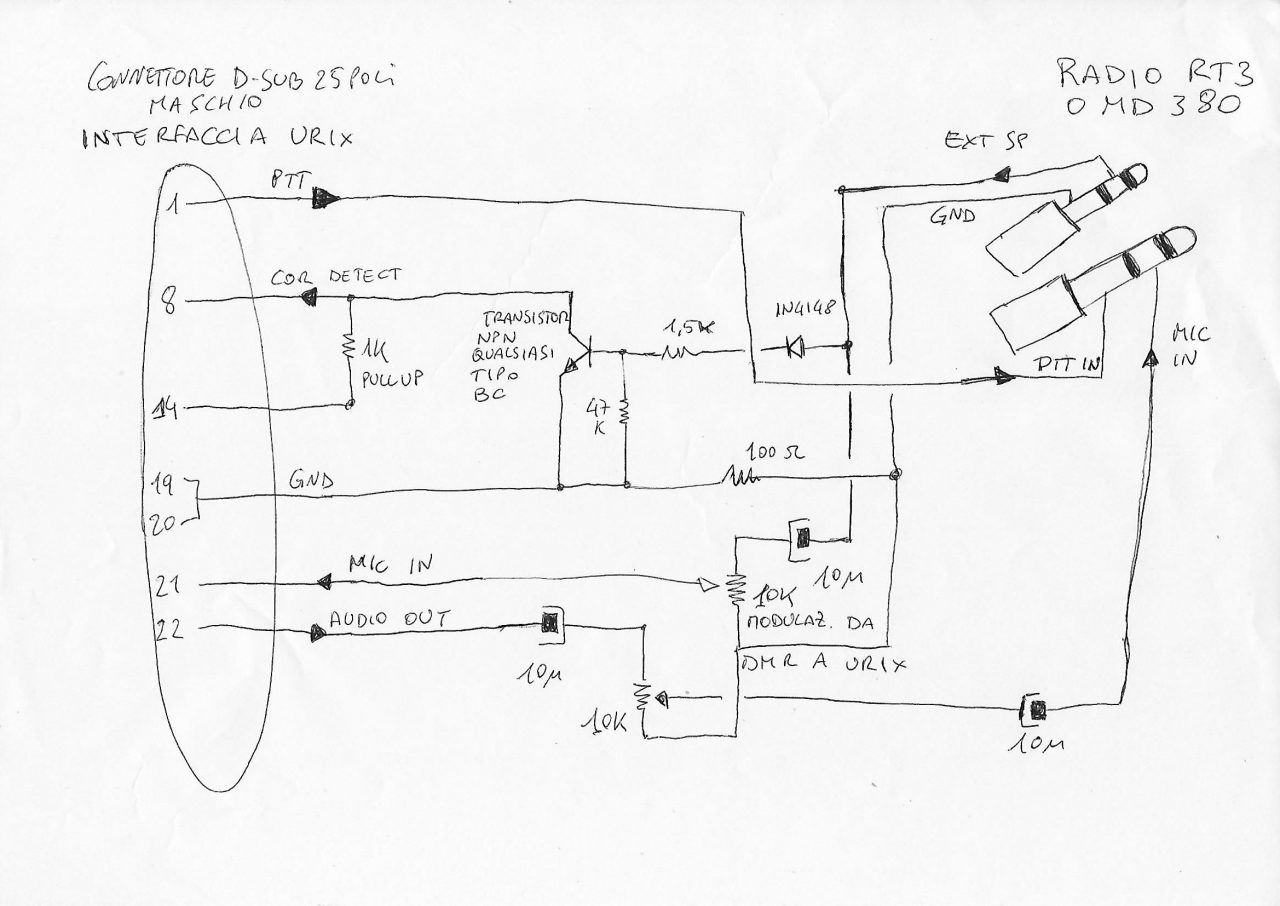 CONNETTORE D-SUB 25 POLI
MASCHIO
INTERFACCIA URIX
RADIO RT3
O MD 380
EXT SP
PTT
1
GND
COR DETECT
8
TRANSISTOR
NPN
QUALSIASI
TIPO
BC
1,5K
1N4148
MIC
IN
1K
PULLUP
PTT IN
14
47
K
100 Ω
19
GND
20
MIC IN
21
10µ
10K
MODULAZ. DA
DMR A URIX
22
AUDIO OUT
10µ
10K
10µ